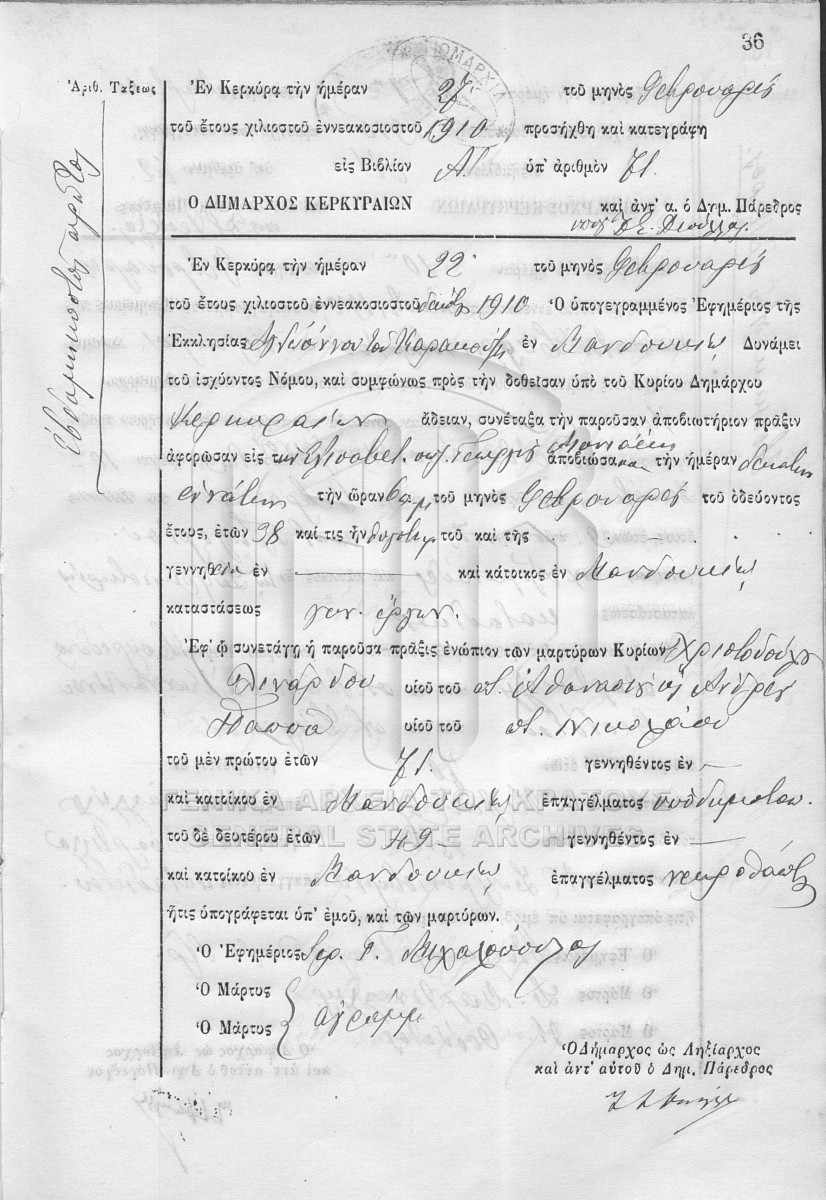 36
Ἀριθ. Τάξεως
Ἑβδομηκοστὸς πρῶτος
Ἐν Κερκύρᾳ τὴν ἡμέραν 27 τοῦ μηνὸς Φεβρουαρίου
τοῦ ἔτους χιλιοστοῦ ἐννεακοσιοστοῦ 1910 προσήχθη καὶ κατεγράφη
εἰς Βιβλίον Α. ὑπ' ἀριθμὸν 71.
Ο ΔΗΜΑΡΧΟΣ ΚΕΡΚΥΡΑΙΩΝ καὶ ἀντ' α. ὁ Δημ. Πάρεδρος
Ἐν Κερκύρᾳ τὴν ἡμέραν 22 τοῦ μηνὸς Φεβρουαρίου
τοῦ ἔτους χιλιοστοῦ ἐννεακοσιοστοῦ δεκάτου 1910 Ὁ ὑπογεγραμμένος Ἐφημέριος τῆς
Ἐκκλησίας ἐν Μανδουκίῳ Δυνάμει
τοῦ ἰσχύοντος Νόμου, καὶ συμφώνως πρὸς τὴν δοθεῖσαν ὑπὸ τοῦ Κυρίου Δημάρχου
Κερκυραίων ἄδειαν, συνέταξα τὴν παροῦσαν ἀποβιωτήριον πρᾶξιν
ἀφορῶσαν εἰς την Ελισαβετ. Γεωργίου ἀποβιώσασα τὴν ἡμέραν δεκάτην
ἐνάτην τὴν ὥραν 6 π.μ. τοῦ μηνὸς Φεβρουαρίου τοῦ ὁδεύοντος
ἔτους, ἐτῶν 38 καί τις ἦν θυγάτηρ τοῦ καὶ τῆς -
γεννηθεῖσα ἐν — καὶ κάτοικος ἐν Μανδουκίῳ
καταστάσεως
Ἐφ' ᾧ συνετάγη ἡ παροῦσα πρᾶξις ἐνώπιον τῶν μαρτύρων Κυρίων Χριστοδούλου
υἱοῦ τοῦ π. Ἀθανασίου καὶ Ἀνδρέου
Παππᾶ υἱοῦ τοῦ π. Νικολάου
τοῦ μὲν πρώτου ἐτῶν 71. γεννηθέντος ἐν —
καὶ κατοίκου ἐν Μανδουκίῳ ἐπαγγέλματος ὑποδηματοπ.
τοῦ δὲ δευτέρου ἐτῶν 49 - γεννηθέντος ἐν —
καὶ κατοίκου ἐν Μανδουκίῳ ἐπαγγέλματος νεκροθάπτου
ἥτις ὑπογράφεται ὑπ' ἐμοῦ, καὶ τῶν μαρτύρων.
Ὁ Ἐφημέριος Ιερ. Γ. Μιχαλόπουλος
Ὁ Μάρτυς
Ὁ Μάρτυς ἀγράμμ.
Ὁ Δήμαρχος ὡς Ληξίαρχος
καὶ ἀντ' αὐτοῦ ὁ Δημ. Πάρεδρος
ΓΕΝΙΚΑ ΑΡΧΕΙΑ ΤΟΥ ΚΡΑΤΟΥΣ
GENERAL STATE ARCHIVES